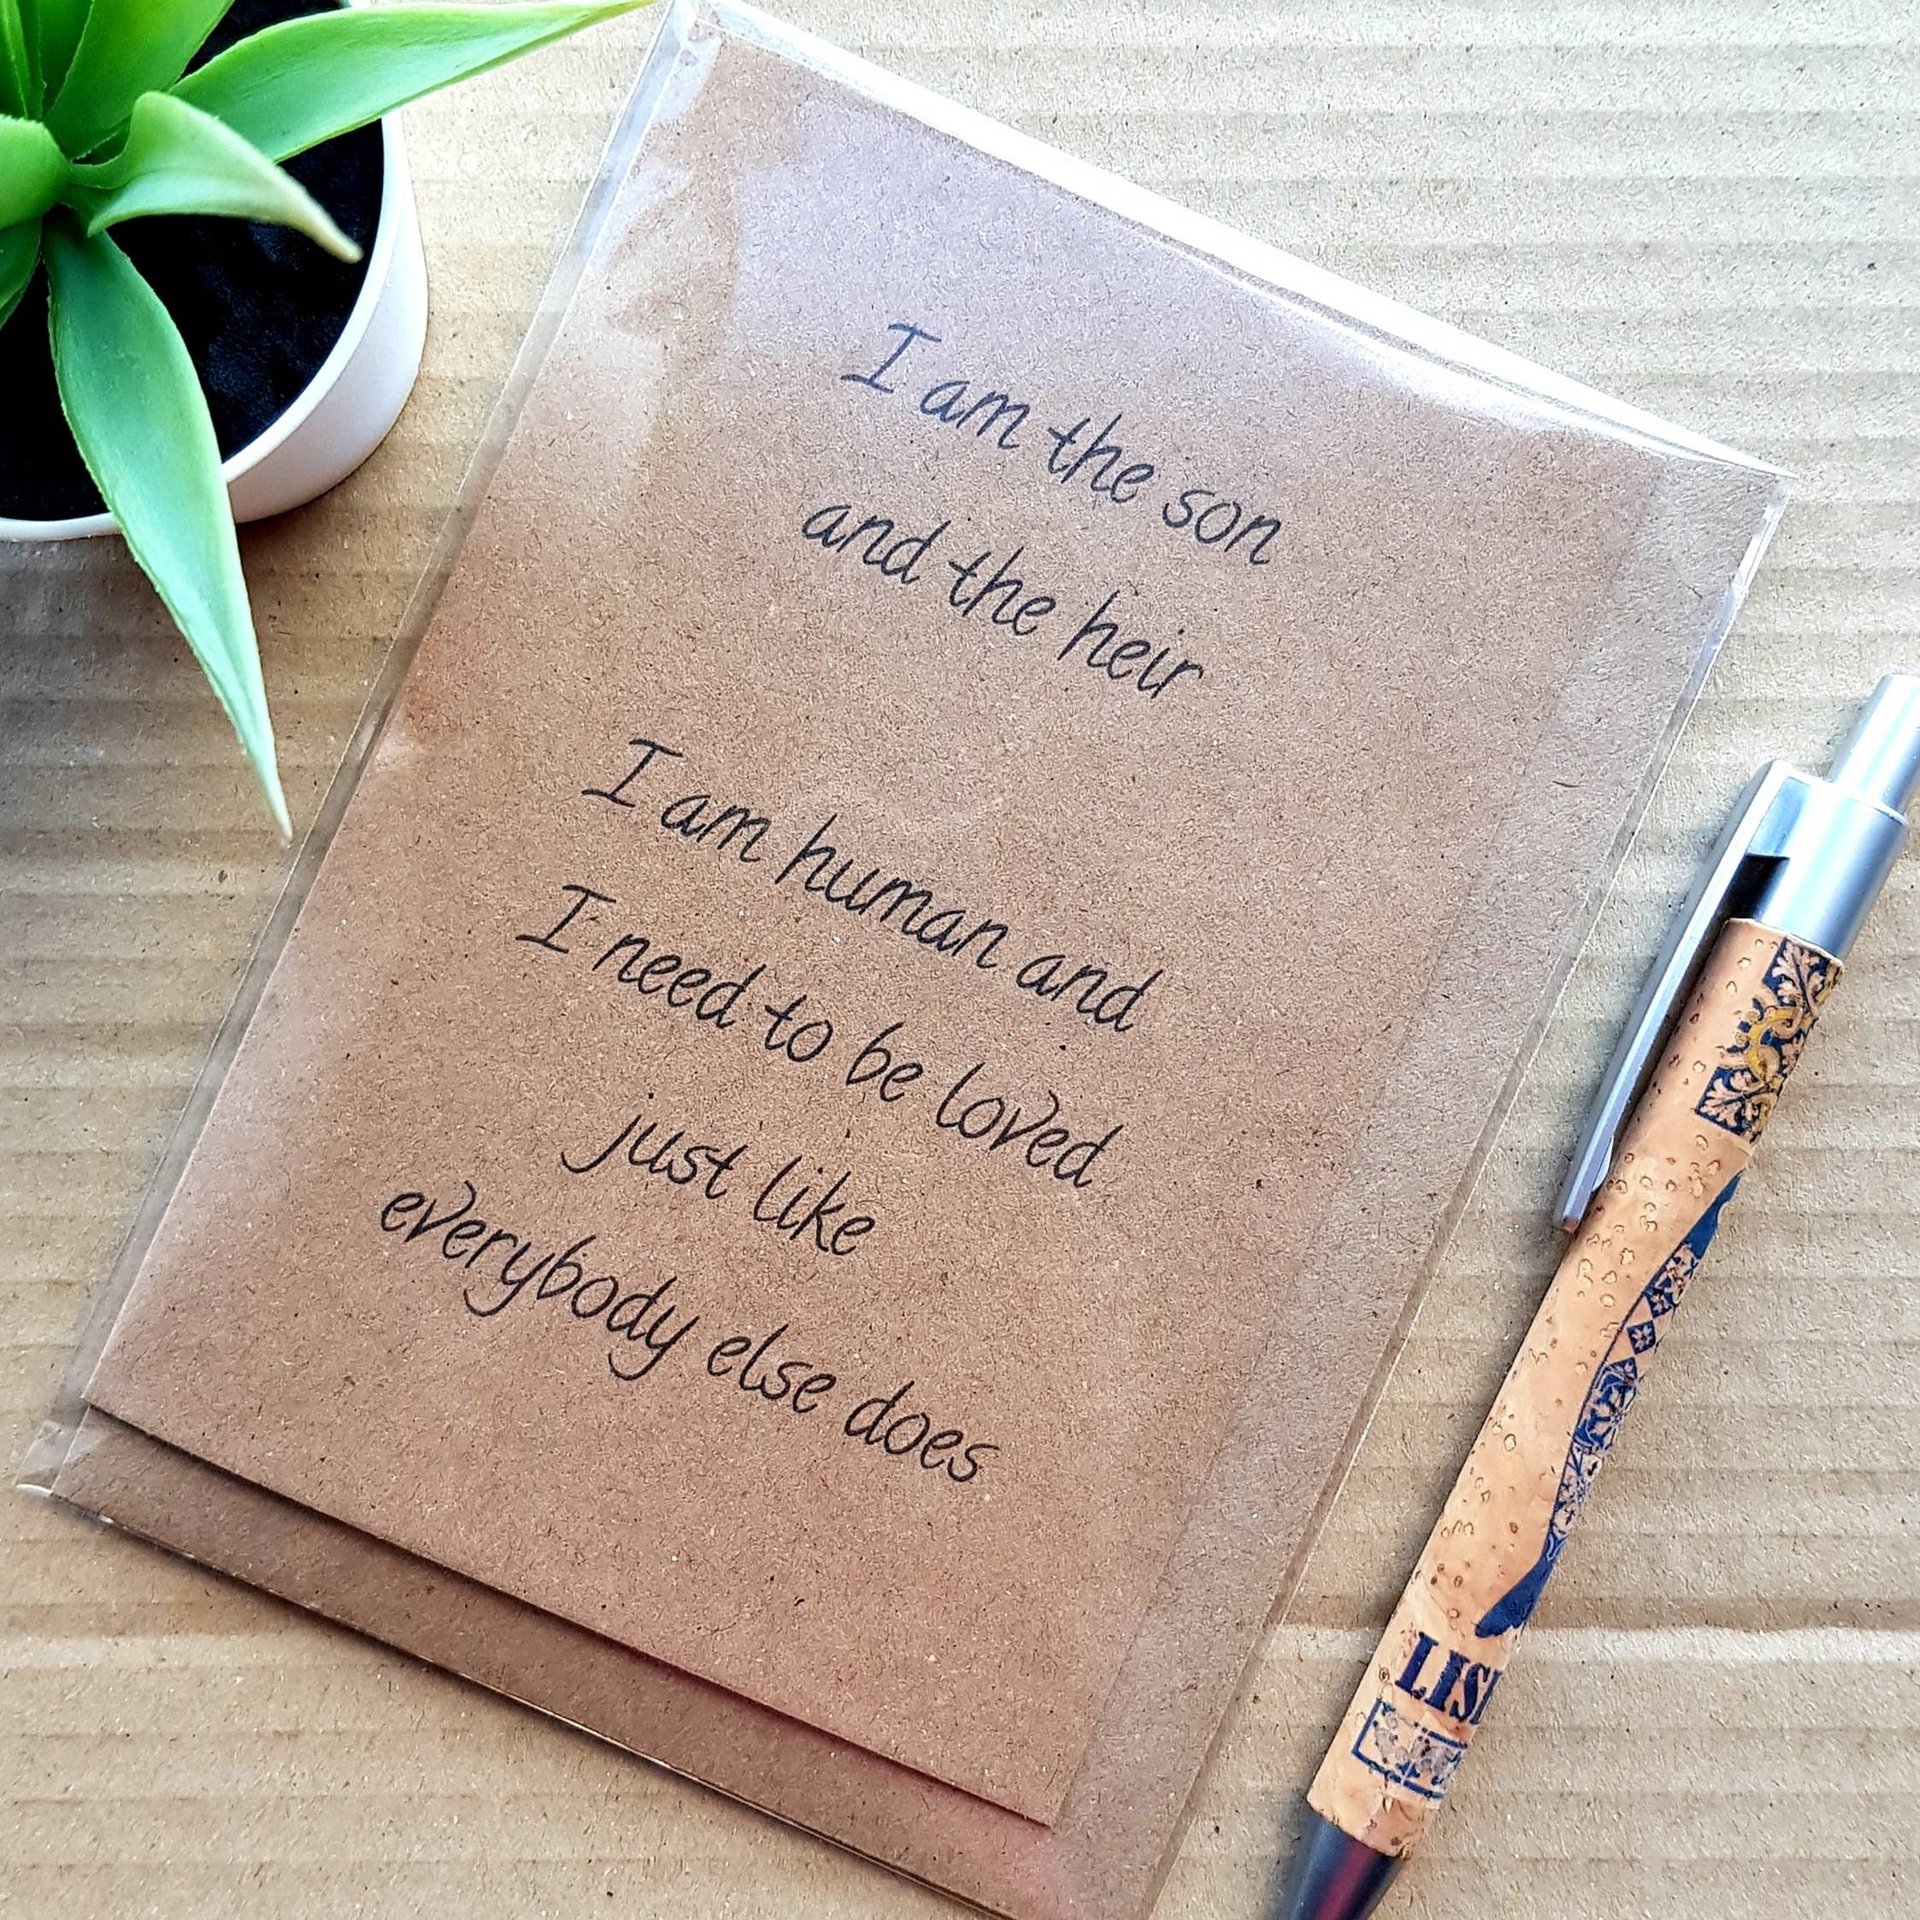 I am the son
and the heir
I am human and
I need to be loved
just like
everybody else does